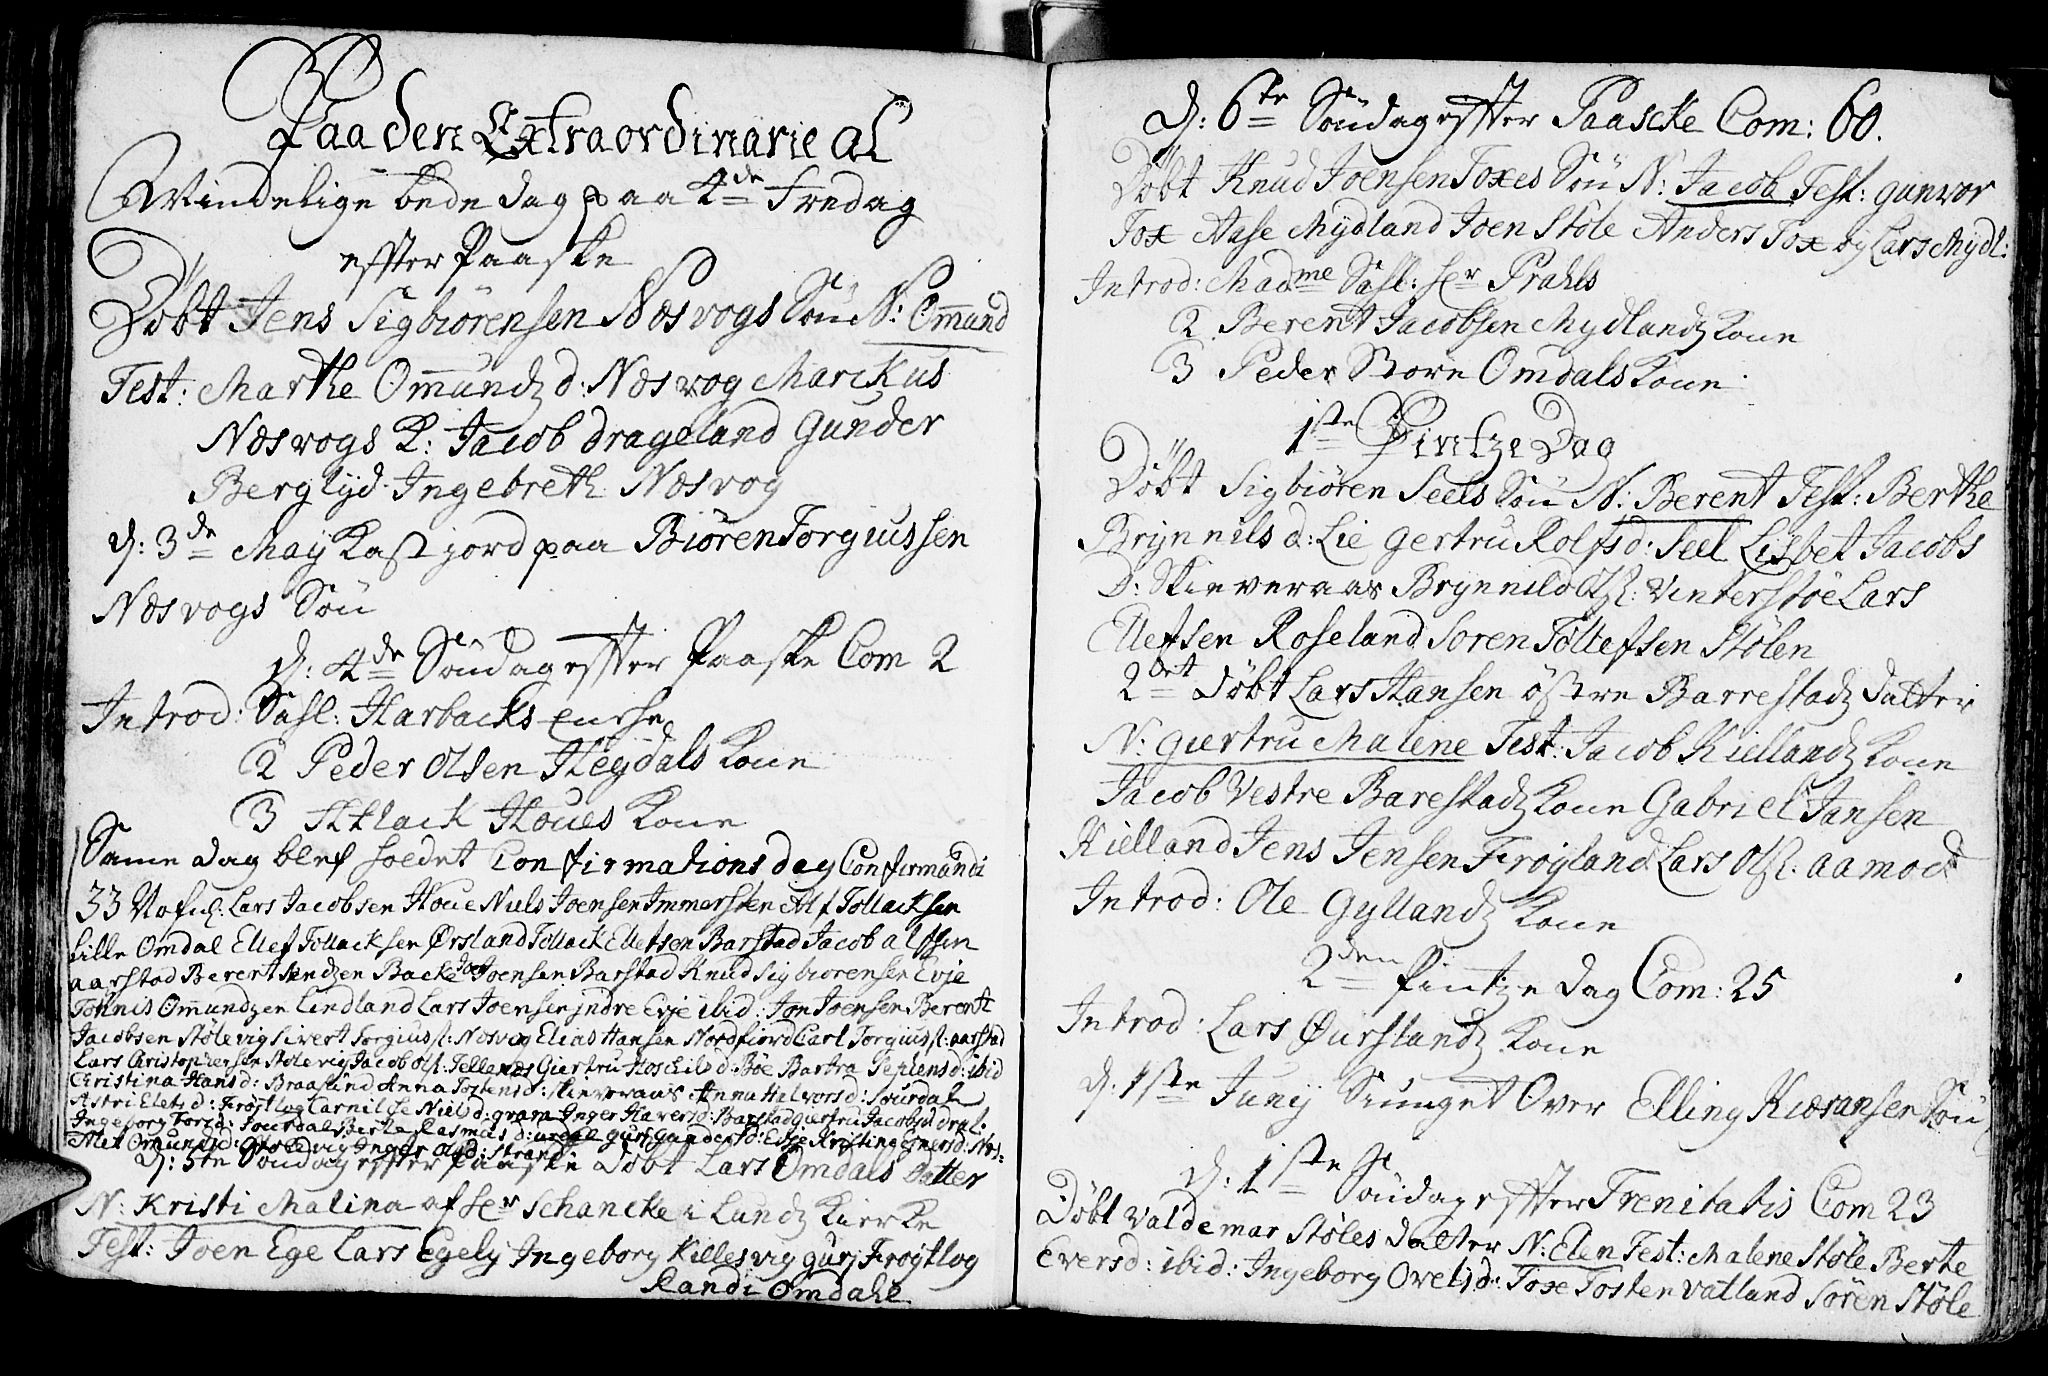 Paa den Extraordinarie al
Mindelige bededag paa 4de Fredag
effter Paaske
Døbt Jens Sigbiørensen Næsvogs Søn N: Omund
Test: Marthe Omundz d: Næsvog Marckus
Næsvogs K: Jacob drageland Gunder
Berglyd Ingebreth Næsvog
d: 3de May Kast jord paa Biøren Torgiussen
Næsvogs Søn
d: 4de Søndag effter Paaske Com 2
Introd: Sahl: Harbacks
2 Peder Olsen Heydals Kone
3 Atlack Houes Kone
Same dag blef holdet Confirmations dag Confirmandi
33 Lars Jacobsen Houe Niels Joensen Immersten Alf Tollacksen
Lille Omdal Ellef Tollacksen Ørsland Tollack Elletsen Barstad Jacob alfsen
aarstad Berent Backe Joen Joensen Barstad Knud Sigbiorensen Evje
Tønnis Omundzen Lindland Lars Joensen jndre Evje ibid: Jon Joensen Berent
Jacobsen Støle vig Sivert Torgiuss: Næsvog Elias Hansen Nordfiord Carl Torgiuss: aarstad
Lars Christophersen Støle vig Jacob Ols: Tellenæs Giertru d: Böe Bartra d: ibid
Christina Hans d: Braastad Anna Tostens d: Skieveraas Anna Halvors d: Sourdal
Astri Elets d: Frøytlog Carnilse Niels d: gram Inger Havers d: Barstad giertru Jacobs d
Ingeborg Tores d: Sourdal Berte Rasmus d: gurj Gunders d: Evje Kristine d:
Omunds d: Støle vig Inger Ols d: Strand
d: 5te Søndag effter Paaske Døbt Lars Omdals Datter
N: Kristi Malina af Hr Schancke i Lundz Kierke
Test: Joen Ege Lars Egely Ingeborg Killesvig gurj Frøytlog
Randi Omdahl
d: 6te Søndag effter Paascke Com: 60.
Døbt Knud Joensen Toxes Søn N: Jacob Test: gunvor
Tox Aase Mydland Joen Støle Anders Tox og Lars Mydl:
Introd: Madme Sahl: Hr Prahls
2 Berent Jacobsen Mydlandz Kone
3 Peder Store Omdals Kone
1ste Pintze Dag
Døbt Sigbiøren Seels Søn N: Berent Test: Berthe
Brynnils d: Lie gertru Rolfs d: Seel Lisbet Jacobs
D: Skieveraas Brynnild Ols: Vinterstøe Lars
Ellefsen Roseland Soren Tollefsen Stølen
2det Døbt Lars Hansen østre Barrestadz datter
N: giertru Malene Test: Jacob Kiellandz Kone
Jacob Vestre Barestadz Kone Gabriel Jansen
Kielland Jens Jensen Frøyland Lars Ols: aamodt
Introd: Ole Gyllandz Kone
2den Pintze dag Com: 25
Introd: Lars Øurslandz Kone
d: 1ste Junij Siunget Over Elling Kiøransen Søn
d: 1ste Søndag effter Trenitatis Com 23
Døbt Valdemar Støles datter N: Elen Test: Malene Støle Berte
Evers d: ibid: Ingeborg Ovels d: Toxe Tosten Vatland Sören Støle